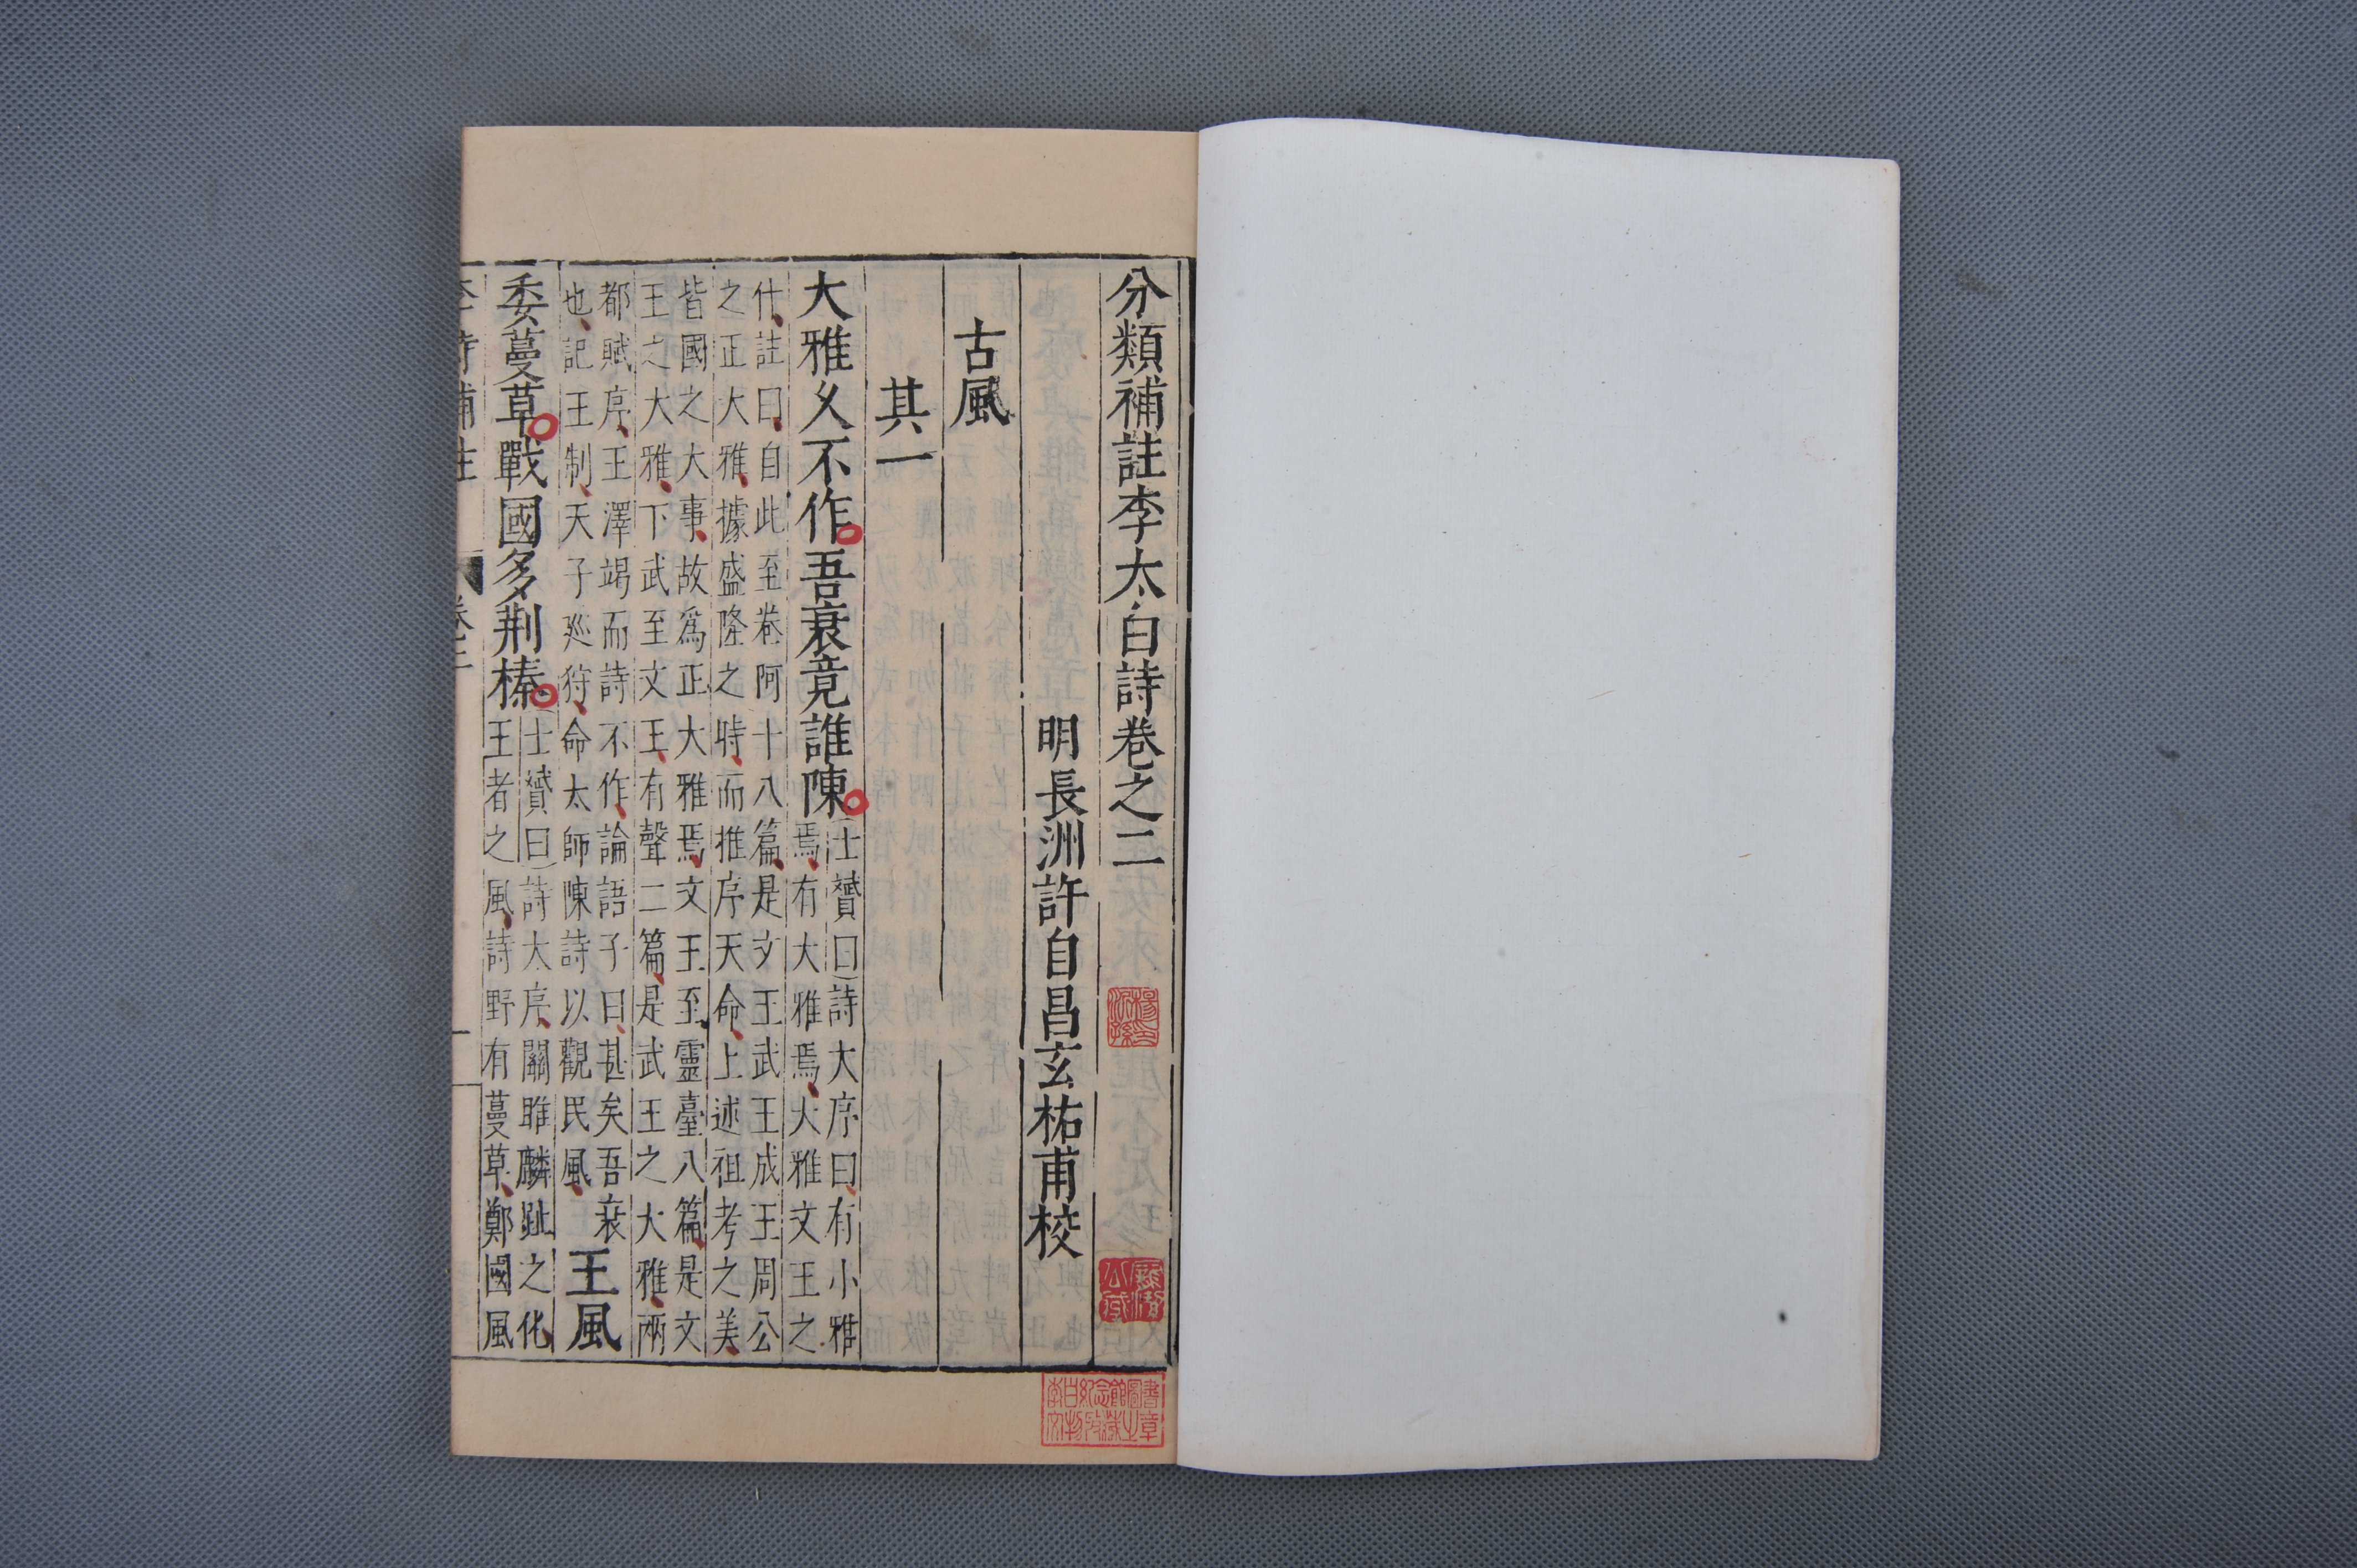 分類補註李太白詩卷之二
明長洲許自昌玄祐甫校
古風
其一
大雅久不作吾衰竟誰陳
士贇曰詩大序曰有小雅
焉有大雅焉大雅文王之
什註曰自此至卷阿十八篇是文王武王成王周公
之正大雅據盛隆之時而推序天命上述祖考之美
皆國之大事故為正大雅焉文王至靈臺八篇是文
王之大雅下武至文王有聲二篇是武王之大雅兩
都賦序王澤竭而詩不作論語子曰甚矣吾衰
也記王制天子廵狩命太師陳詩以觀民風
王風
委蔓草戰國多荆榛
士贇曰詩大序關雎麟趾之化
王者之風詩野有蔓草鄭國風
李詩補註
卷二
一
李白紀念館圖書
文物收藏之章